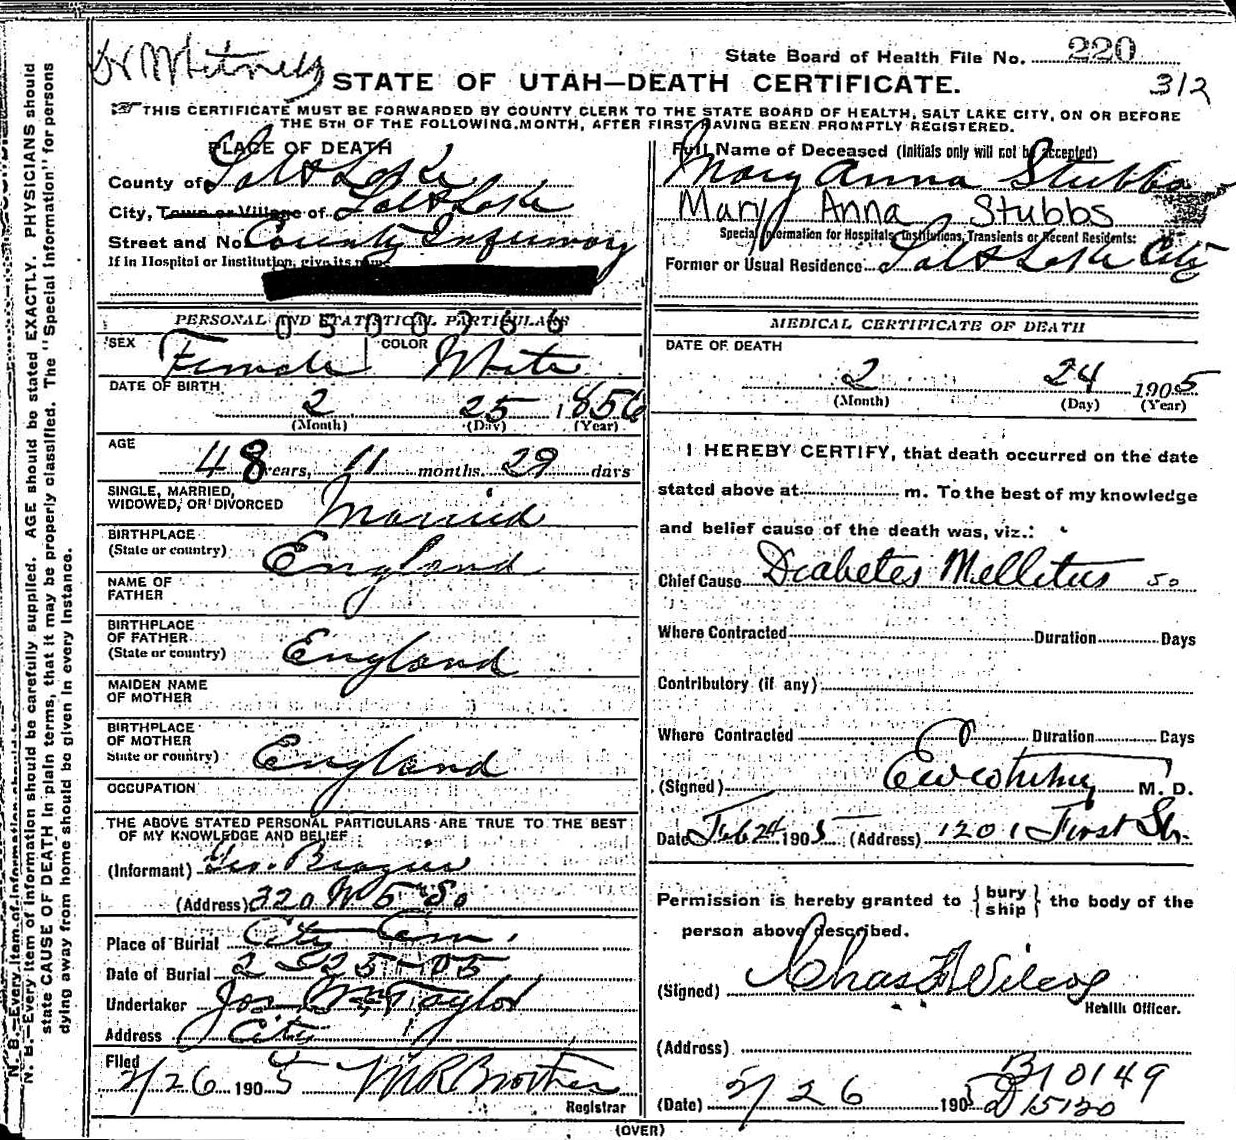 State Board of Health File No. 220
312
STATE OF UTAH—DEATH CERTIFICATE.
THIS CERTIFICATE MUST BE FORWARDED BY COUNTY CLERK TO THE STATE BOARD OF HEALTH, SALT LAKE CITY, ON OR BEFORE
THE 5TH OF THE FOLLOWING MONTH, AFTER FIRST HAVING BEEN PROMPTLY REGISTERED.
PLACE OF DEATH
County of Salt Lake
City, Town or Village of Salt Lake
Street and No. County Infirmary
If in Hospital or Institution, give its name
PERSONAL AND STATISTICAL PARTICULARS
0500766
SEX Female COLOR White
DATE OF BIRTH
2 25 1856
(Month) (Day) (Year)
AGE
48 years, 11 months. 29 days
SINGLE, MARRIED,
WIDOWED, OR DIVORCED Married
BIRTHPLACE
(State or country) England
NAME OF
FATHER
BIRTHPLACE
OF FATHER
(State or country) England
MAIDEN NAME
OF MOTHER
BIRTHPLACE
OF MOTHER
State or country) England
OCCUPATION
THE ABOVE STATED PERSONAL PARTICULARS ARE TRUE TO THE BEST
OF MY KNOWLEDGE AND BELIEF
(Informant) Geo.
(Address) 220 W 5 So
Place of Burial City Cem.
Date of Burial 2-25-05
Undertaker Jos Wm Taylor
Address City
Filed
2/26 1905 M R Brothers
Registrar
Full Name of Deceased (Initials only will not be accepted)
Mary Anna Stubbs
Mary Anna Stubbs
Special Information for Hospitals, Institutions, Transients or Recent Residents:
Former or Usual Residence Salt Lake City
MEDICAL CERTIFICATE OF DEATH
DATE OF DEATH
2 24 1905
(Month) (Day) (Year)
I HEREBY CERTIFY, that death occurred on the date
stated above at m. To the best of my knowledge
and belief cause of the death was, viz.:
Chief Cause Diabetes Mellitus 50
Where Contracted Duration Days
Contributory (if any)
Where Contracted Duration Days
(Signed) M. D.
Date Feb 24 1905 (Address) 1201 First St.
Permission is hereby granted to { bury ship } the body of the
person above described.
(Signed) Chas F Wilcox
Health Officer.
(Address)
B10149
(Date) 2/26 1905 D15120
(OVER)
N. B.—Every item of information should be carefully supplied. AGE should be stated EXACTLY. PHYSICIANS should
state CAUSE OF DEATH in plain terms, that it may be properly classified. The "Special Information" for persons
dying away from home should be given in every instance.